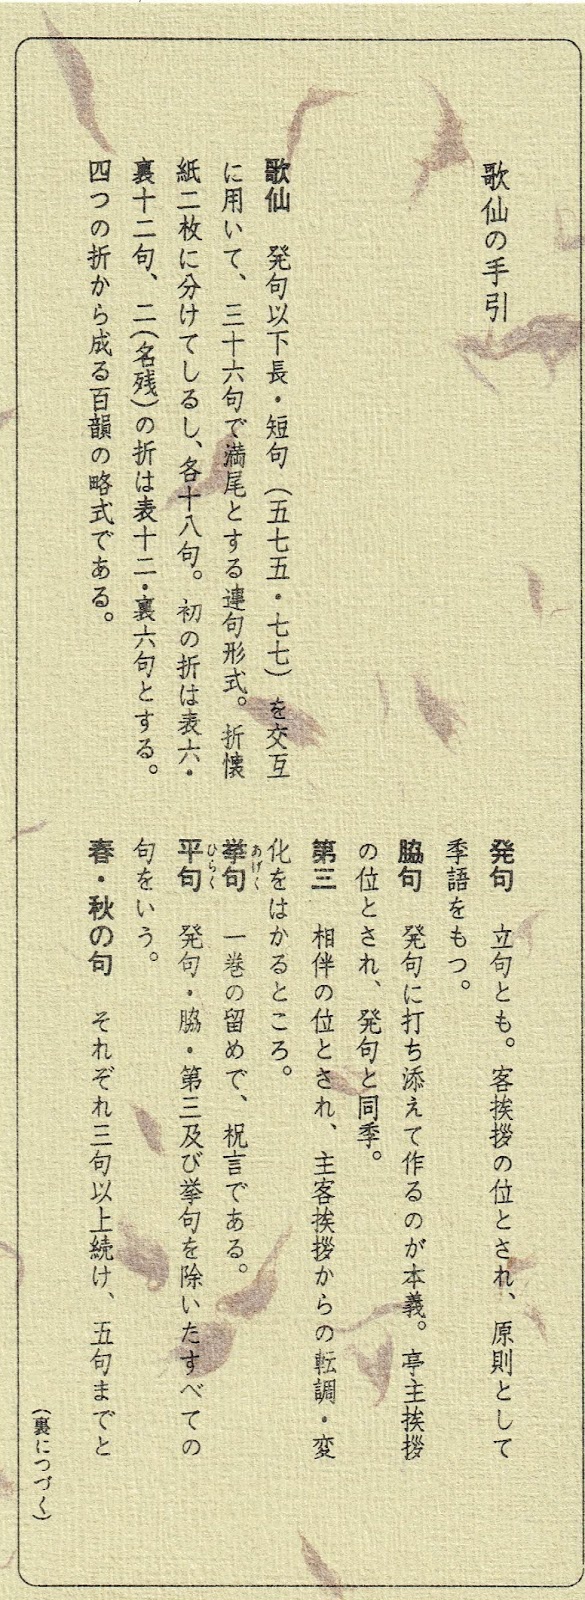 歌仙の手引
歌仙　発句以下長・短句（五七五・七七）を交互
に用いて、三十六句で満尾とする連句形式。折懐
紙二枚に分けてしるし、各十八句。初の折は表六・
裏十二句、二（名残）の折は表十二・裏六句とする。
四つの折から成る百韻の略式である。
発句　立句とも。客挨拶の位とされ、原則として
季語をもつ。
脇句　発句に打ち添えて作るのが本義。亭主挨拶
の位とされ、発句と同季。
第三　相伴の位とされ、主客挨拶からの転調・変
化をはかるところ。
あげく
挙句　一巻の留めで、祝言である。
ひらく
平句　発句・脇・第三及び挙句を除いたすべての
句をいう。
春・秋の句　それぞれ三句以上続け、五句までと
（裏につづく）